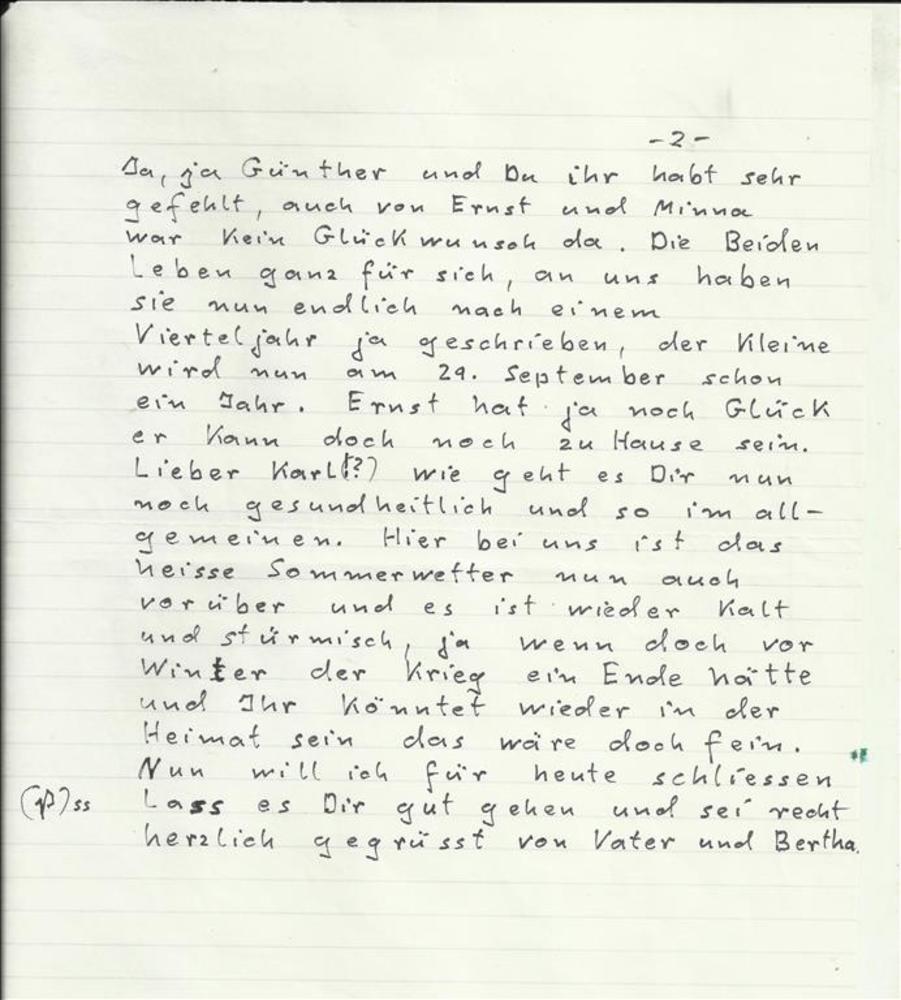 -2-
Ja, ja Günther und Du ihr habt sehr
gefehlt, auch von Ernst und Minna
war kein Glückwunsch da. Die Beiden
Leben ganz für sich, an uns haben
sie nun endlich nach einem
Vierteljahr ja geschrieben, der Kleine
wird nun am 29. September schon
ein Jahr. Ernst hat ja noch Glück
er kann doch noch zu Hause sein.
Lieber Karl(?) wie geht es Dir nun
noch gesundheitlich und so im all-
gemeinen. Hier bei uns ist das
heisse Sommerwetter nun auch
vorüber und es ist wieder kalt
und stürmisch, ja wenn doch vor
Winter der Krieg ein Ende hätte
und Ihr könntet wieder in der
Heimat sein das wäre doch fein.
Nun will ich für heute schliessen
(β)ss Lass es Dir gut gehen und sei recht
herzlich gegrüsst von Vater und Bertha.